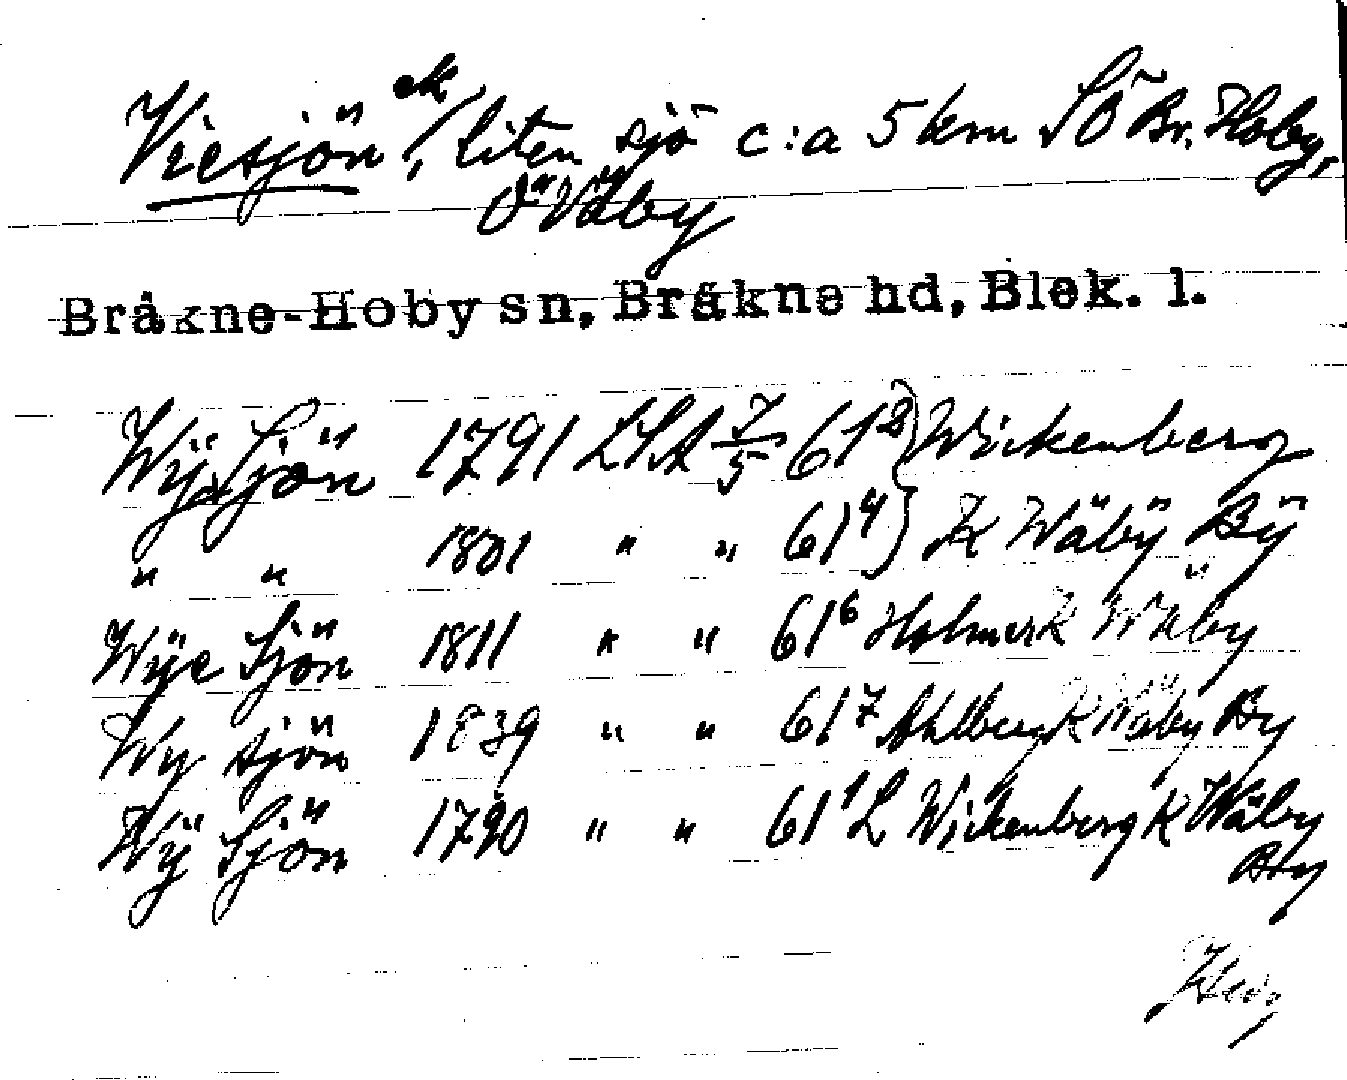 Viesjön ek/, liten sjö c:a 5 km SÖ Br. Hoby,
Ö Väby
Bräkne-Hoby sn, Bräkne hd, Blek. l.
Wÿe Sjön 1791 LSA 7/5 61² } Wickenberg
" " 1801 " " 61⁴ } K Wäbÿ Bÿ
Wÿe Sjön 1811 " " 61⁶ Holmer K Wäby
Wy sjön 1839 " " 61⁷ Ahlberg K Wäby By
Wÿ Sjön 1790 " " 61¹ L Wickenberg K Wäby
By